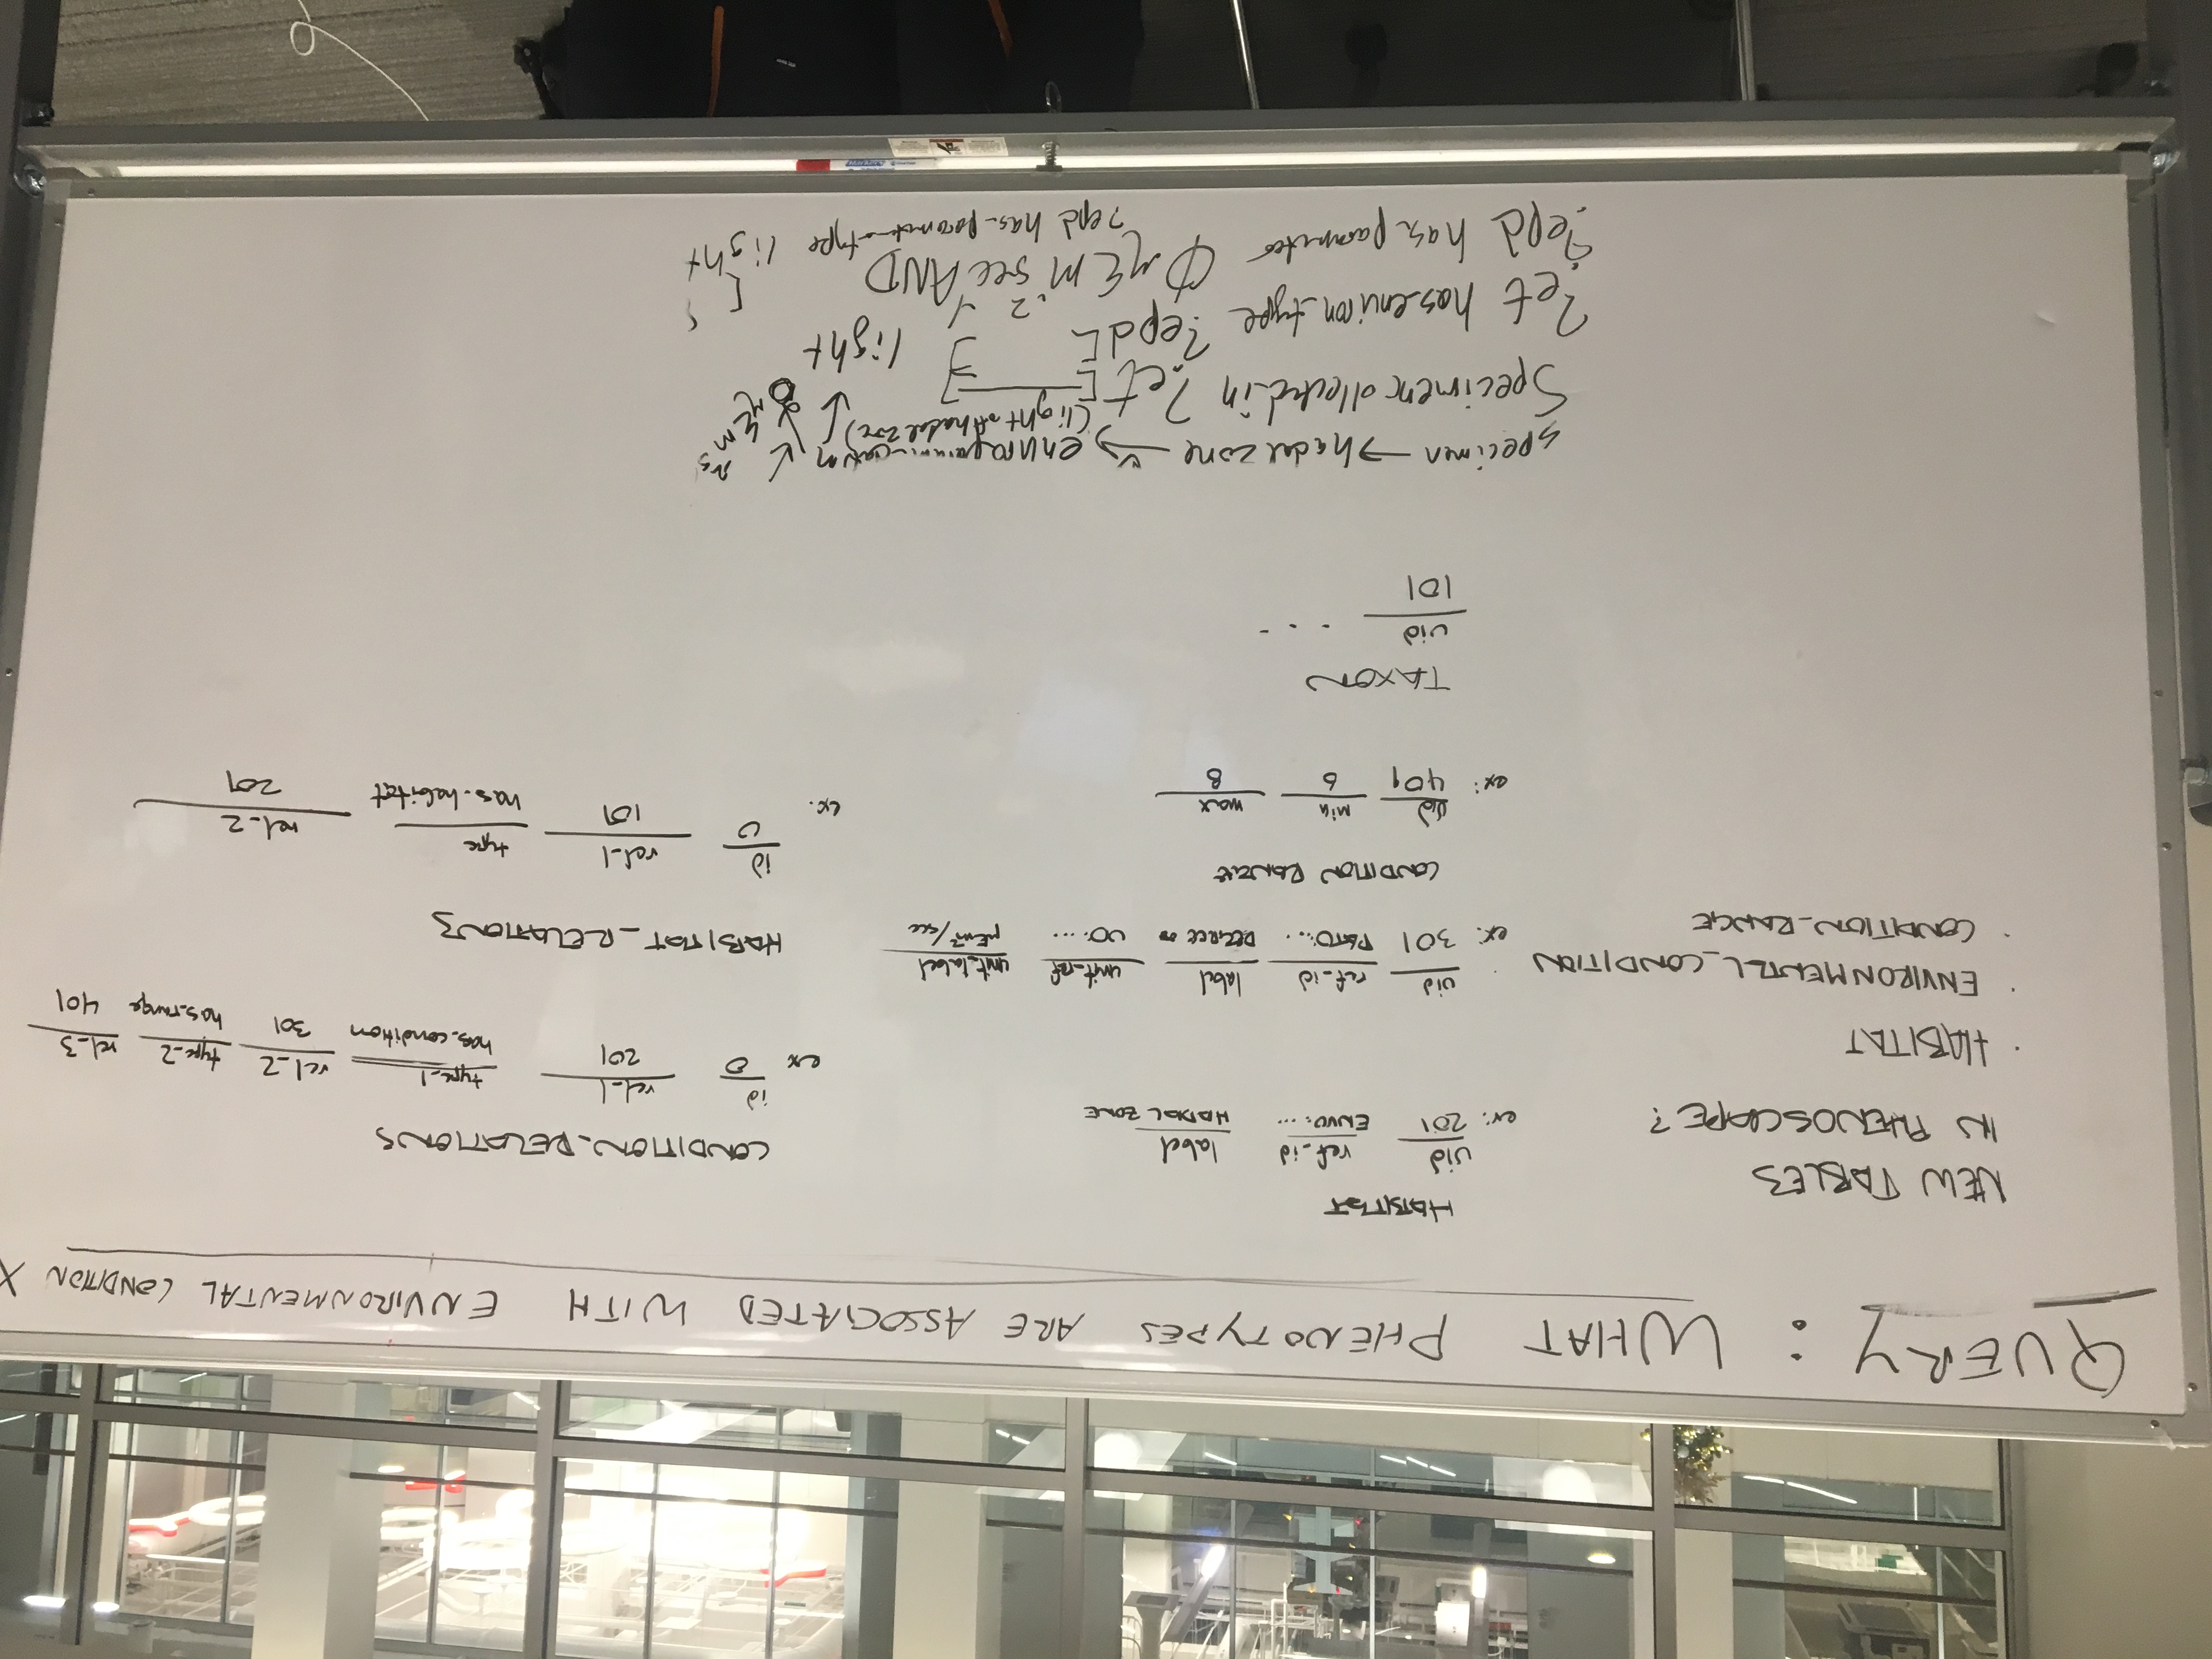 QUERY: WHAT PHENOTYPES ARE ASSOCIATED WITH ENVIRONMENTAL CONDITION X
NEW TABLES
IN PHENOSCAPE?
· HABITAT
· ENVIRONMENTAL_CONDITION
· CONDITION_RANGE
HABITAT
uid ref_id label
ex: 201 ENVO:... HADAL ZONE
uid ref_id label unit_ref unit_label
ex: 301 PATO:... DEGREE OF UO:.... µEm²/sec
CONDITION RANGE
uid min max
ex: 401 6 8
TAXON
uid ...
101
CONDITION_RELATIONS
id rel_1 type_1 rel_2 type_2 rel_3
ex 0 201 has_condition 301 has_range 401
HABITAT_RELATIONS
id rel_1 type rel_2
ex. 0 101 has_habitat 201
specimen → hadal zone →
(light of hadal zone)
Specimen collected_in ?et [ ]
?et has_environ_type ?epd [ ]
light
?epd has_parameter 0 µE m⁻² sec⁻¹ AND
?epd has_parameter_type light